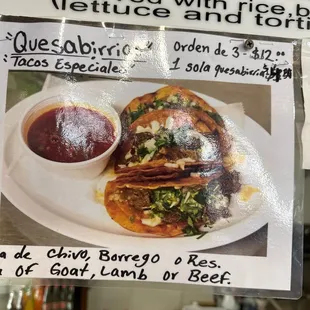 with rice,
(lettuce and torti
"Quesabirria"
orden de 3 - $12.00
"Tacos Especiales"
1 sola quesabirria
a de Chivo, Borrego o Res.
of Goat, Lamb or Beef.